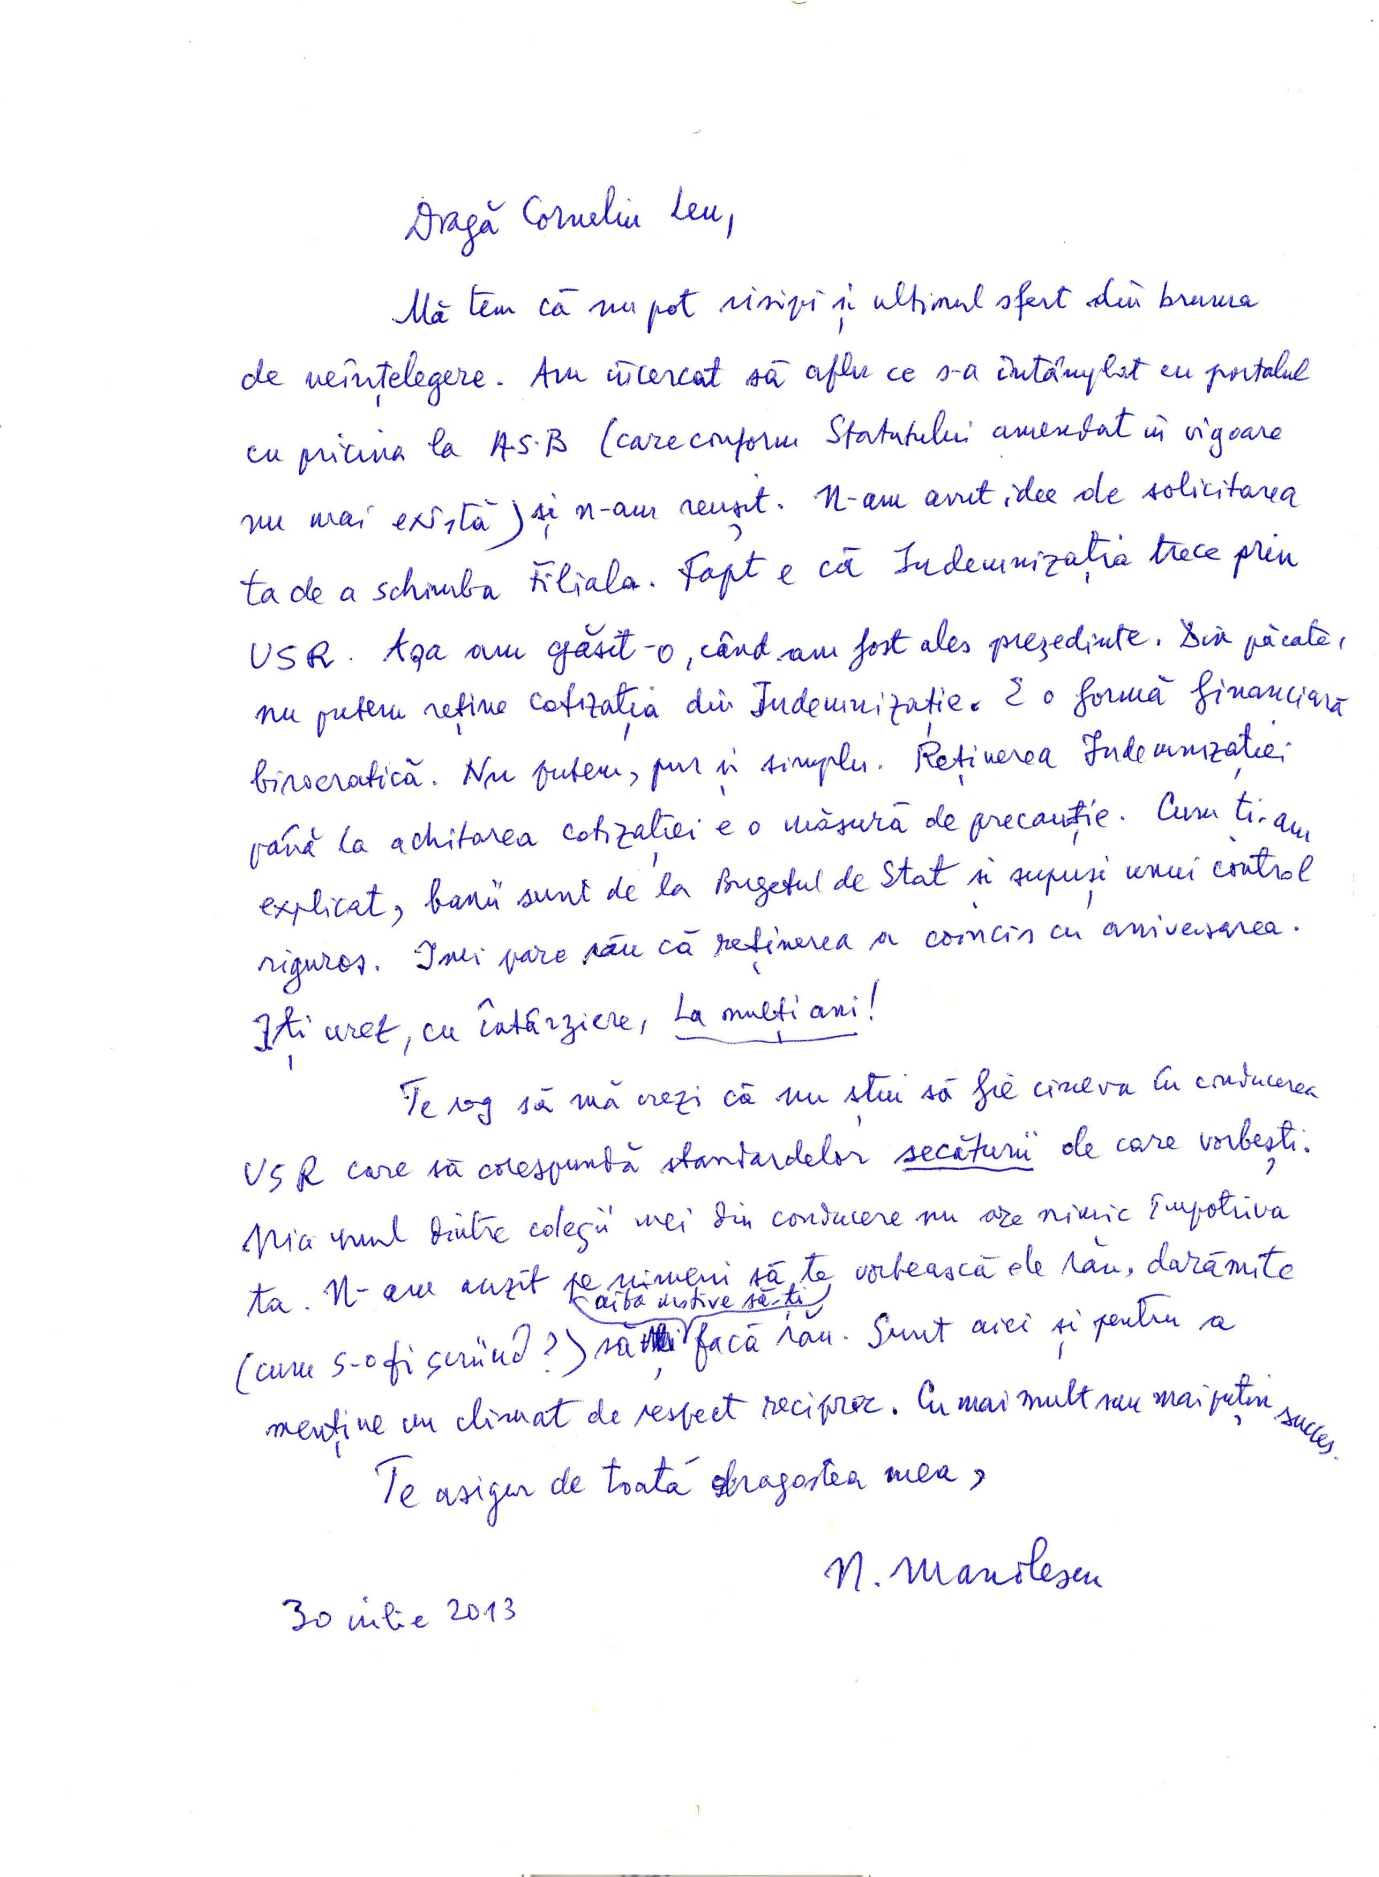 Dragă Corneliu Leu,
Mă tem că nu pot risipi și ultimul sfert din bruma
de neînțelegere. Am încercat să aflu ce s-a întâmplat cu portalul
cu pricina la A.S.B (care conform Statutului amendat în vigoare
nu mai există) și n-am reușit. N-am avut idee de solicitarea
ta de a schimba Filiala. Fapt e că Indemnizația trece prin
USR. Așa am găsit-o, când am fost ales președinte. Din păcate,
nu putem reține cotizația din Indemnizație. E o formă financiară
birocratică. Nu putem, pur și simplu. Reținerea Indemnizației
până la achitarea cotizației e o măsură de precauție. Cum ți-am
explicat, banii sunt de la Bugetul de Stat și supuși unui control
riguros. Îmi pare rău că reținerea a coincis cu aniversarea.
Îți urez, cu întârziere, La mulți ani!
Te rog să mă crezi că nu știu să fie cineva în conducerea
USR care să corespundă standardelor secăturii de care vorbești.
Nici unul dintre colegii mei din conducere nu are nimic împotriva
ta. N-am auzit pe nimeni să te vorbească de rău, darămite
aibă motive să-ți
(cum s-o fi scriind?) să facă rău. Sunt aici și pentru a
menține un climat de respect reciproc. Cu mai mult sau mai puțin succes.
Te asigur de toată dragostea mea,
N. Manolescu
30 iulie 2013